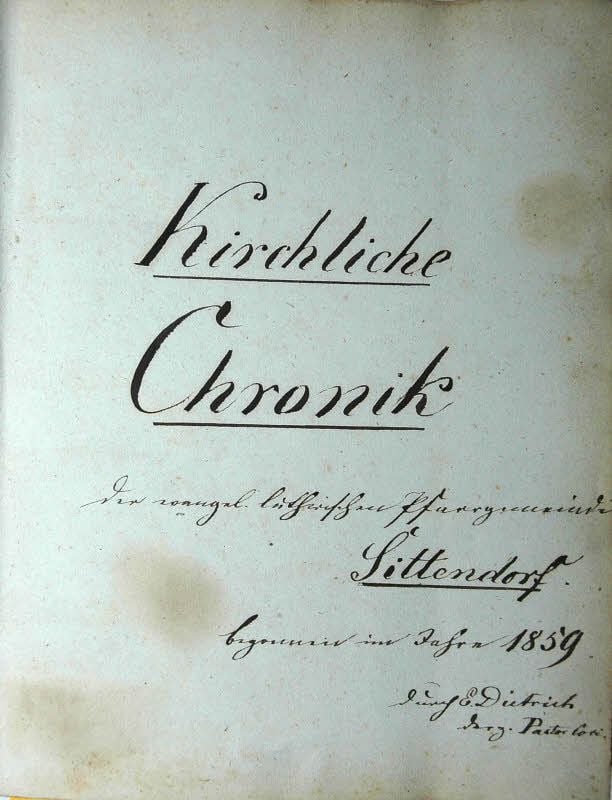 Kirchliche
Chronik
der evangel. luthrischen Pfarrgemeinde
Sittendorf.
begonnen im Jahre 1859
durch E. Dietrich
derz. Pastor loci.